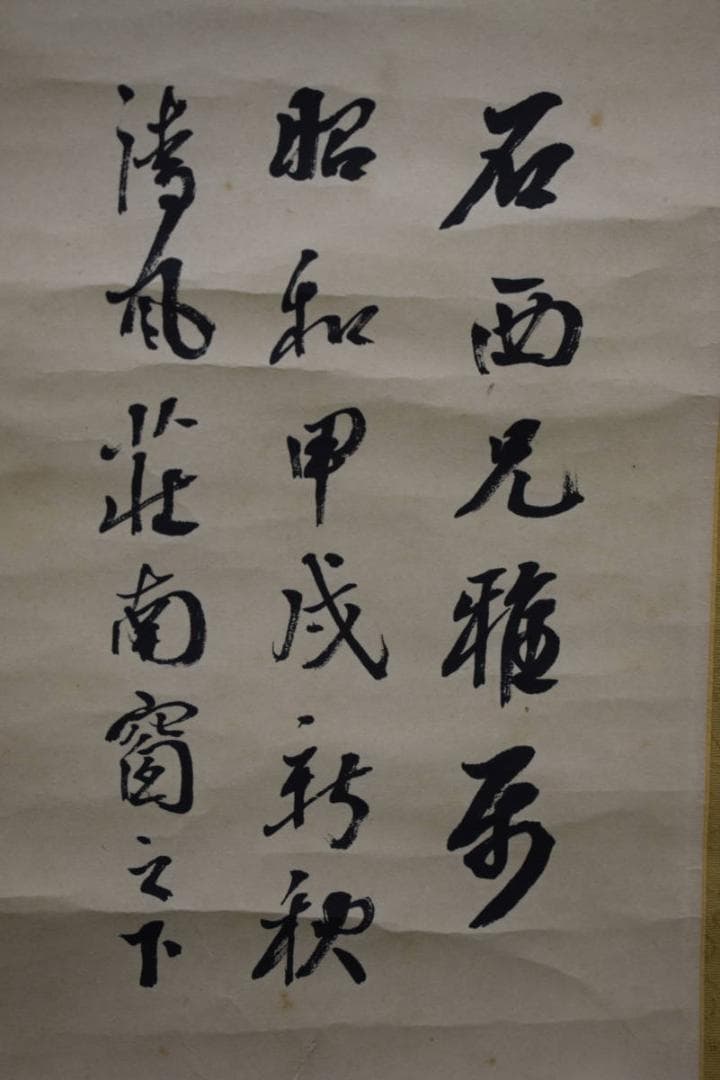 石西兄雅属
昭和甲戌新秋
清風荘南窗之下